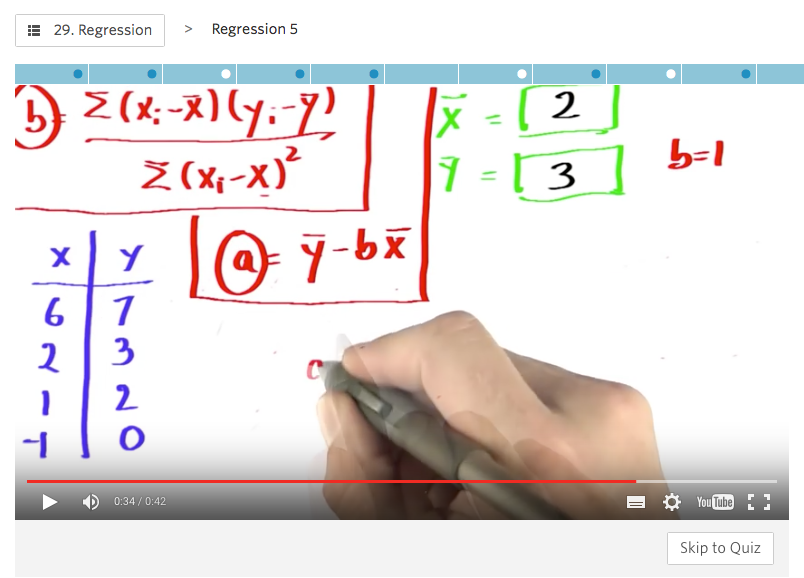 29. Regression > Regression 5
b = Σ(xᵢ-x̄)(yᵢ-ȳ)
Σ(xᵢ-x)²
x̄ = 2
ȳ = 3
b=1
a = ȳ-bx̄
x y
6 7
2 3
1 2
-1 0
a
0:34 / 0:42
YouTube
Skip to Quiz